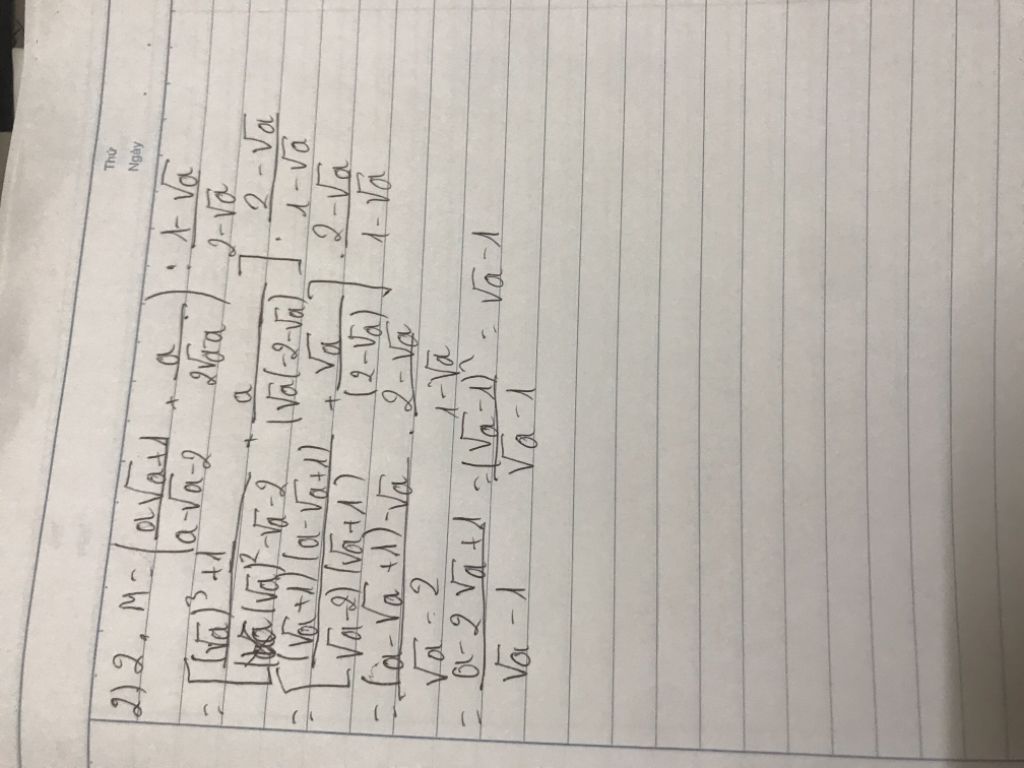 Thứ
Ngày
2) 2. M = (a√a+1 / a-√a-2 + a / 2√a-a) : 1-√a / 2-√a
= [(√a)³+1 / (√a)²-√a-2 + a / √a(2-√a)] . 2-√a / 1-√a
= [(√a+1)(a-√a+1) / (√a-2)(√a+1) + √a / (2-√a)] . 2-√a / 1-√a
= (a-√a+1)-√a / √a-2 . 2-√a / 1-√a
= a-2√a+1 / √a-1 = (√a-1)² / √a-1 = √a-1